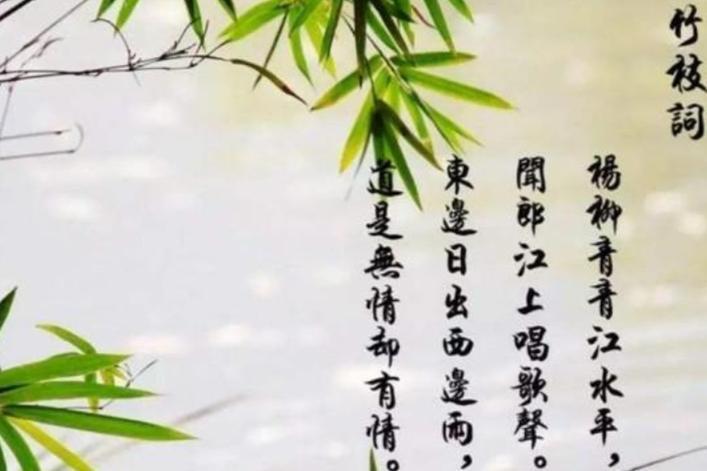 竹枝詞
楊柳青青江水平，
聞郎江上唱歌聲。
東邊日出西邊雨，
道是無情却有情。